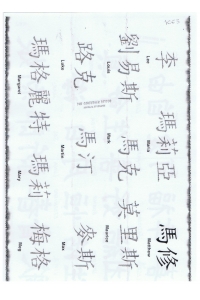 李
Lee
瑪莉亞
Maria
馬修
Matthew
劉易斯
Louis
馬克
Mark
莫里斯
Maurice
路克
Luke
馬汀
Martin
麥斯
Max
瑪格麗特
Margaret
瑪莉
Mary
梅格
Meg